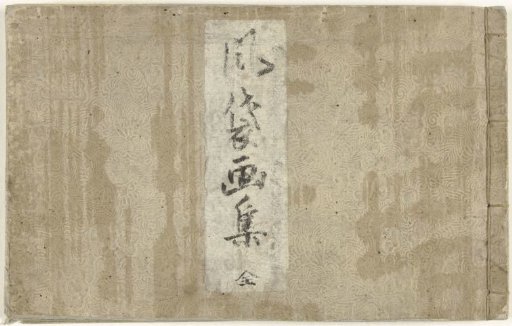 風袋画集 全